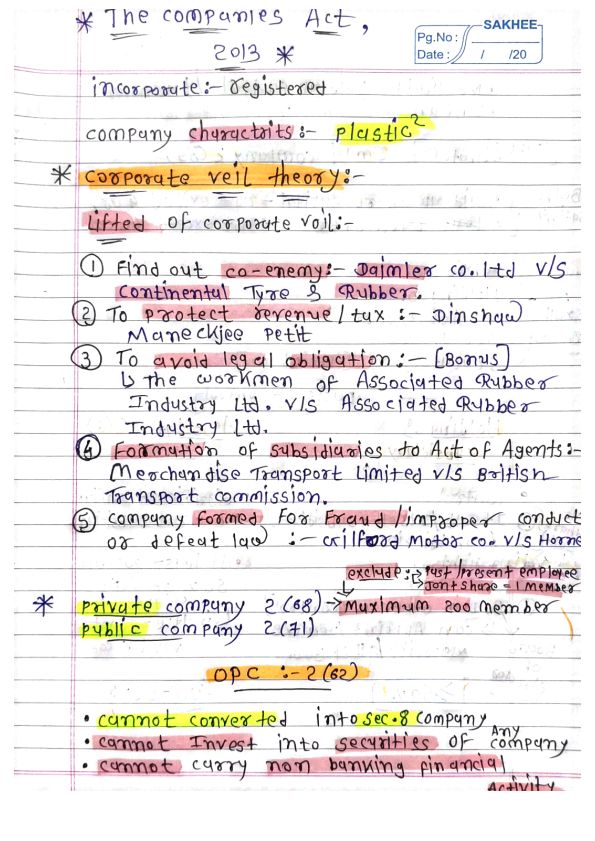 * The companies Act,
2013 *
SAKHEE
Pg.No :
Date : / /20
incorporate:- registered
company charactrits:- plastic²
* corporate veil theory:-
Lifted of corporate voil:-
① Find out co-enemy:- Daimler co. ltd v/s
continental Tyre & Rubber.
② To protect revenue/tax :- Dinshaw
Maneckjee Petit
③ To avoid legal obligation:- [Bonus]
↳ The workmen of Associated Rubber
Industry Ltd. v/s Associated Rubber
Industry Ltd.
④ Formation of subsidiaries to Act of Agents:-
Merchandise Transport Limited v/s British
Transport commission.
⑤ company formed For Fraud/improper conduct
or defeat law :- Gilford Motor co. v/s Horne
exclude:→ Past/present employee
Joint share = 1 member
* private company 2(68) → Maximum 200 member
public company 2(71)
OPC :- 2(62)
• cannot converted into sec.8 company
• cannot Invest into securities of Any company
• cannot carry non banking financial
Activity